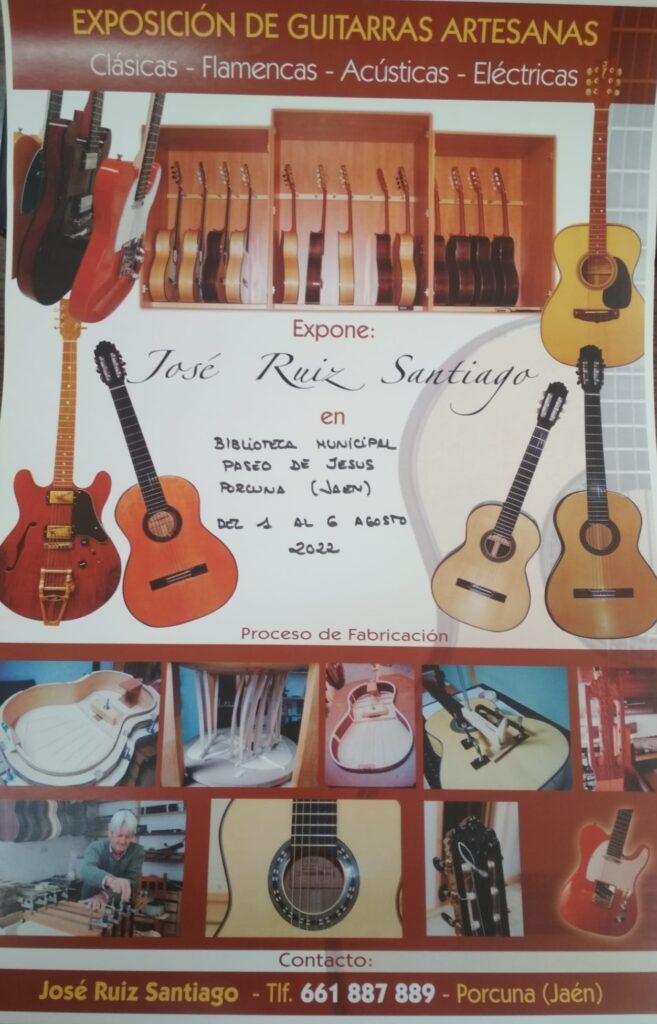 EXPOSICIÓN DE GUITARRAS ARTESANAS
Clásicas - Flamencas - Acústicas - Eléctricas
Expone:
José Ruiz Santiago
en
BIBLIOTECA MUNICIPAL
PASEO DE JESUS
PORCUNA (JAEN)
DEL 1 AL 6 AGOSTO
2022
Proceso de Fabricación
Contacto:
José Ruiz Santiago - Tlf. 661 887 889 - Porcuna (Jaén)